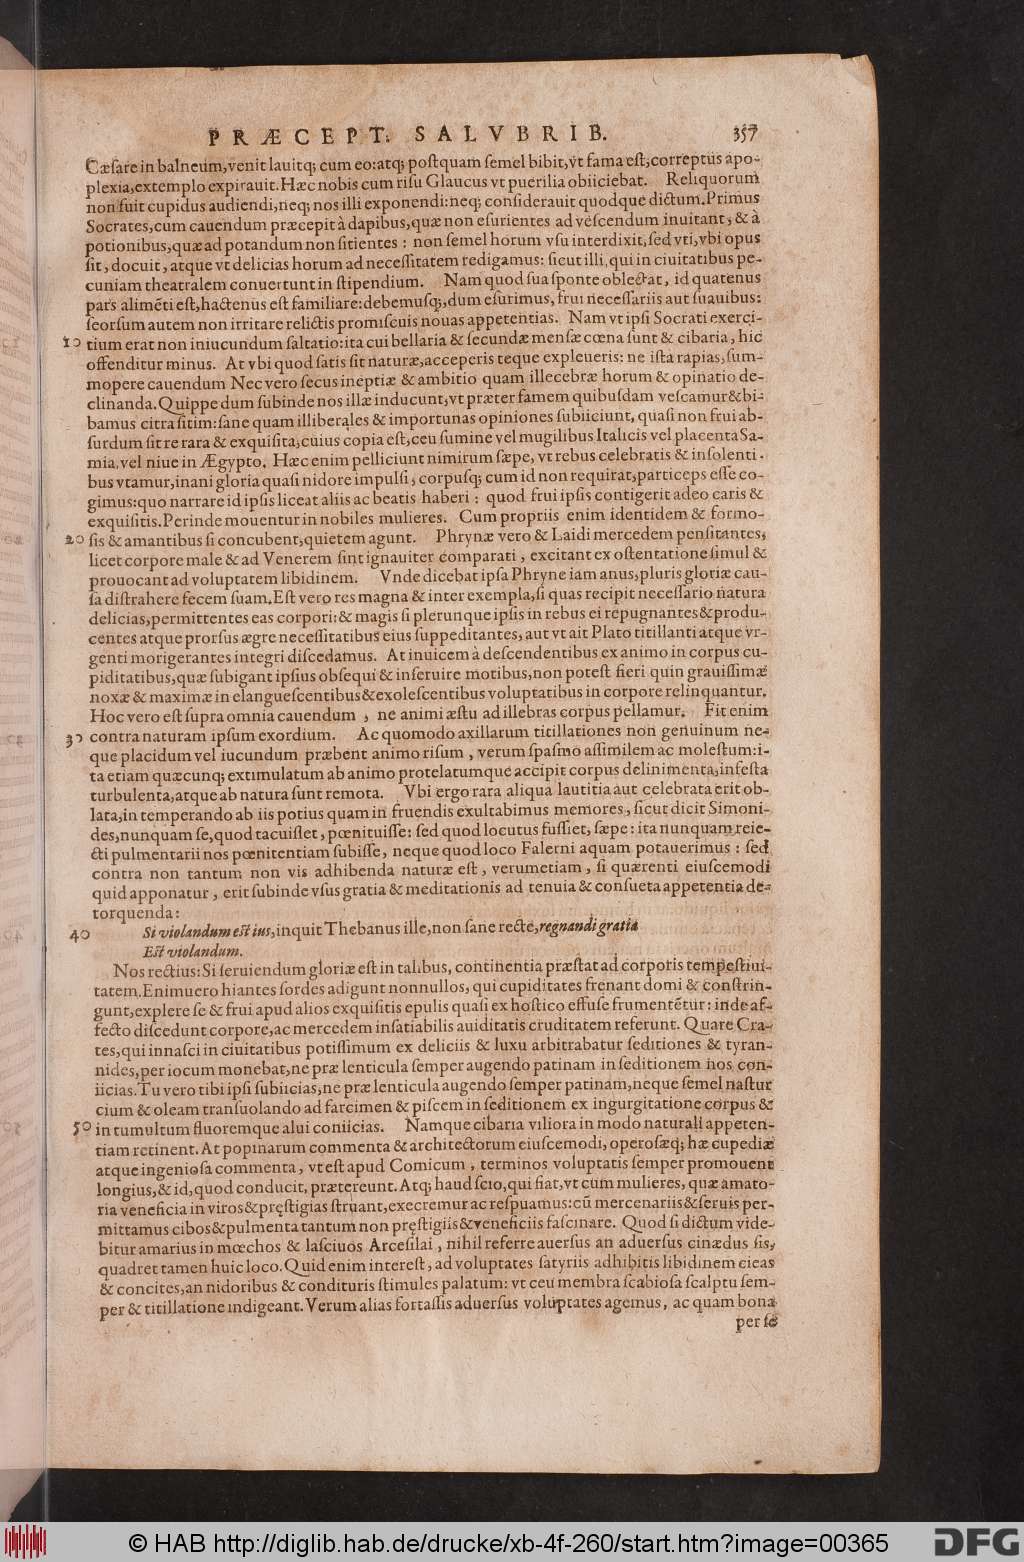 PRÆCEPT. SALVBRIB. 357
Cæsare in balneum, venit lauitq; cum eo: atq; postquam semel bibit, vt fama est, correptus apo-
plexia, extemplo expirauit. Hæc nobis cum risu Glaucus vt puerilia obiiciebat. Reliquorum
non fuit cupidus audiendi, neq; nos illi exponendi: neq; considerauit quodque dictum. Primus
Socrates, cum cauendum præcepit à dapibus, quæ non esurientes ad vescendum inuitant, & à
potionibus, quæ ad potandum non sitientes : non semel horum vsu interdixit, sed vti, vbi opus
sit, docuit, atque vt delicias horum ad necessitatem redigamus: sicut illi, qui in ciuitatibus pe-
cuniam theatralem conuertunt in stipendium. Nam quod sua sponte oblectat, id quatenus
pars alimēti est, hactenus est familiare: debemusq;, dum esurimus, frui necessariis aut suauibus:
seorsum autem non irritare relictis promiscuis nouas appetentias. Nam vt ipsi Socrati exerci-
10 tium erat non iniucundum saltatio: ita cui bellaria & secundæ mensæ cœna sunt & cibaria, hic
offenditur minus. At vbi quod satis sit naturæ, acceperis teque expleueris: ne ista rapias, sum-
mopere cauendum Nec vero secus ineptiæ & ambitio quam illecebræ horum & opinatio de-
clinanda. Quippe dum subinde nos illæ inducunt, vt præter famem quibusdam vescamur & bi-
bamus citra sitim: sane quam illiberales & importunas opiniones subiiciunt, quasi non frui ab-
surdum sit re rara & exquisita, cuius copia est, ceu sumine vel mugilibus Italicis vel placenta Sa-
mia, vel niue in Ægypto. Hæc enim pelliciunt nimirum sæpe, vt rebus celebratis & insolenti-
bus vtamur, inani gloria quasi nidore impulsi, corpusq; cum id non requirat, particeps esse co-
gimus: quo narrare id ipsis liceat aliis ac beatis haberi : quod frui ipsis contigerit adeo caris &
exquisitis. Perinde mouentur in nobiles mulieres. Cum propriis enim identidem & formo-
20 sis & amantibus si concubent, quietem agunt. Phrynæ vero & Laidi mercedem pensitantes,
licet corpore male & ad Venerem sint ignauiter comparati, excitant ex ostentatione simul &
prouocant ad voluptatem libidinem. Vnde dicebat ipsa Phryne iam anus, pluris gloriæ cau-
sa distrahere fecem suam. Est vero res magna & inter exempla, si quas recipit necessario natura
delicias, permittentes eas corpori: & magis si plerunque ipsis in rebus ei repugnantes & produ-
centes atque prorsus ægre necessitatibus eius suppeditantes, aut vt ait Plato titillanti atque vr-
genti morigerantes integri discedamus. At inuicem à descendentibus ex animo in corpus cu-
piditatibus, quæ subigant ipsius obsequi & inseruire motibus, non potest fieri quin grauissimæ
noxæ & maximæ in elanguescentibus & exolescentibus voluptatibus in corpore relinquantur.
Hoc vero est supra omnia cauendum, ne animi æstu ad illebras corpus pellamur. Fit enim
30 contra naturam ipsum exordium. Ac quomodo axillarum titillationes non genuinum ne-
que placidum vel iucundum præbent animo risum, verum spasmo assimilem ac molestum: i-
ta etiam quæcunq; extimulatum ab animo protelatumque accipit corpus delinimenta, infesta
turbulenta, atque ab natura sunt remota. Vbi ergo rara aliqua lautitia aut celebrata erit ob-
lata, in temperando ab iis potius quam in fruendis exultabimus memores, sicut dicit Simoni-
des, nunquam se, quod tacuisset, pœnituisse: sed quod locutus fussiet, sæpe: ita nunquam reie-
cti pulmentarii nos pœnitentiam subisse, neque quod loco Falerni aquam potauerimus : sed
contra non tantum non vis adhibenda naturæ est, verumetiam, si quærenti eiuscemodi
quid apponatur, erit subinde vsus gratia & meditationis ad tenuia & consueta appetentia de-
torquenda:
40 Si violandum est ius, inquit Thebanus ille, non sane recte, regnandi gratia
Est violandum.
Nos rectius: Si seruiendum gloriæ est in talibus, continentia præstat ad corporis tempestiui-
tatem. Enimuero hiantes sordes adigunt nonnullos, qui cupiditates frenant domi & constrin-
gunt, explere se & frui apud alios exquisitis epulis quasi ex hostico effuse frumentētur: inde af-
fecto discedunt corpore, ac mercedem insatiabilis auiditatis cruditatem referunt. Quare Cra-
tes, qui innasci in ciuitatibus potissimum ex deliciis & luxu arbitrabatur seditiones & tyran-
nides, per iocum monebat, ne præ lenticula semper augendo patinam in seditionem nos con-
iicias. Tu vero tibi ipsi subiicias, ne præ lenticula augendo semper patinam, neque semel nastur
cium & oleam transuolando ad farcimen & piscem in seditionem ex ingurgitatione corpus &
50 in tumultum fluoremque alui coniicias. Namque cibaria viliora in modo naturali appeten-
tiam retinent. At popinarum commenta & architectorum eiuscemodi, operosæq; hæ cupediæ
atque ingeniosa commenta, vt est apud Comicum, terminos voluptatis semper promouent
longius, & id, quod conducit, prætereunt. Atq; haud scio, qui fiat, vt cum mulieres, quæ amato-
ria veneficia in viros & pręstigias struant, execremur ac respuamus: cū mercenariis & seruis per-
mittamus cibos & pulmenta tantum non pręstigiis & veneficiis fascinare. Quod si dictum vide-
bitur amarius in mœchos & lasciuos Arcesilai, nihil referre auersus an aduersus cinædus sis,
quadret tamen huic loco. Quid enim interest, ad voluptates satyriis adhibitis libidinem cieas
& concites, an nidoribus & condituris stimules palatum: vt ceu membra scabiosa scalptu sem-
per & titillatione indigeant. Verum alias fortassis aduersus voluptates agemus, ac quam bona
per se
© HAB http://diglib.hab.de/drucke/xb-4f-260/start.htm?image=00365
DFG